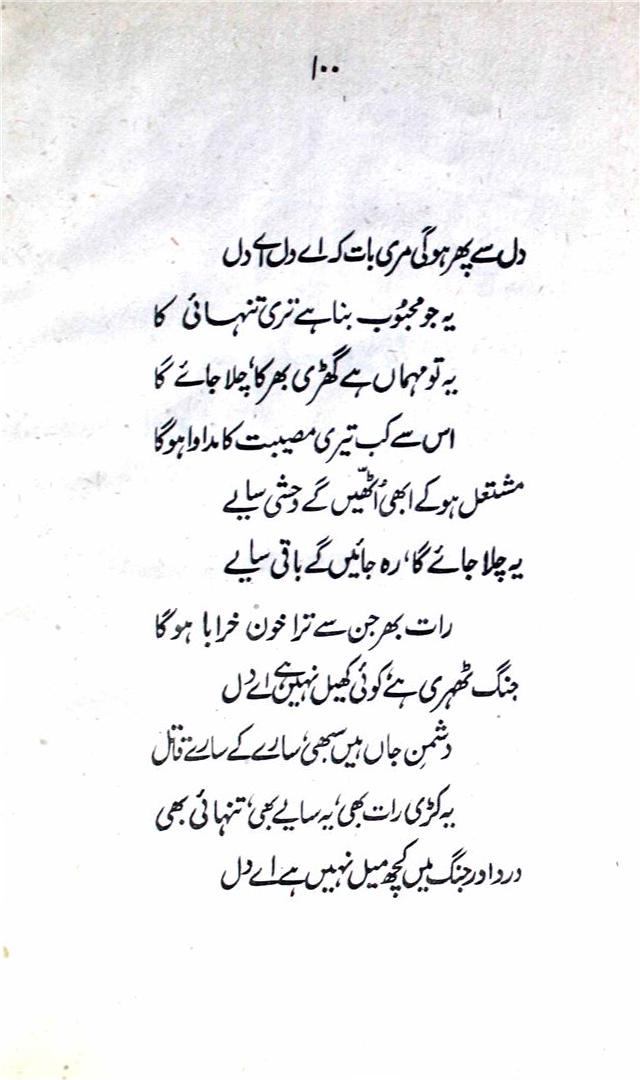 ۱۰۰
دل سے پھر ہوگی مری بات کہ اے دل اے دل
یہ جو محبُوب بنا ہے تری تنہائی کا
یہ تو مہماں ہے گھڑی بھر کا، چلا جائے گا
اس سے کب تیری مصیبت کا مداوا ہوگا
مشتعل ہو کے ابھی اُٹھّیں گے وحشی سایے
یہ چلا جائے گا، رہ جائیں گے باقی سایے
رات بھر جن سے ترا خون خرابا ہوگا
جنگ ٹھہری ہے کوئی کھیل نہیں ہے اے دل
دشمنِ جاں ہیں سبھی، سارے کے سارے قاتل
یہ کڑی رات بھی، یہ سایے بھی، تنہائی بھی
درد اور جنگ میں کچھ میل نہیں ہے اے دل